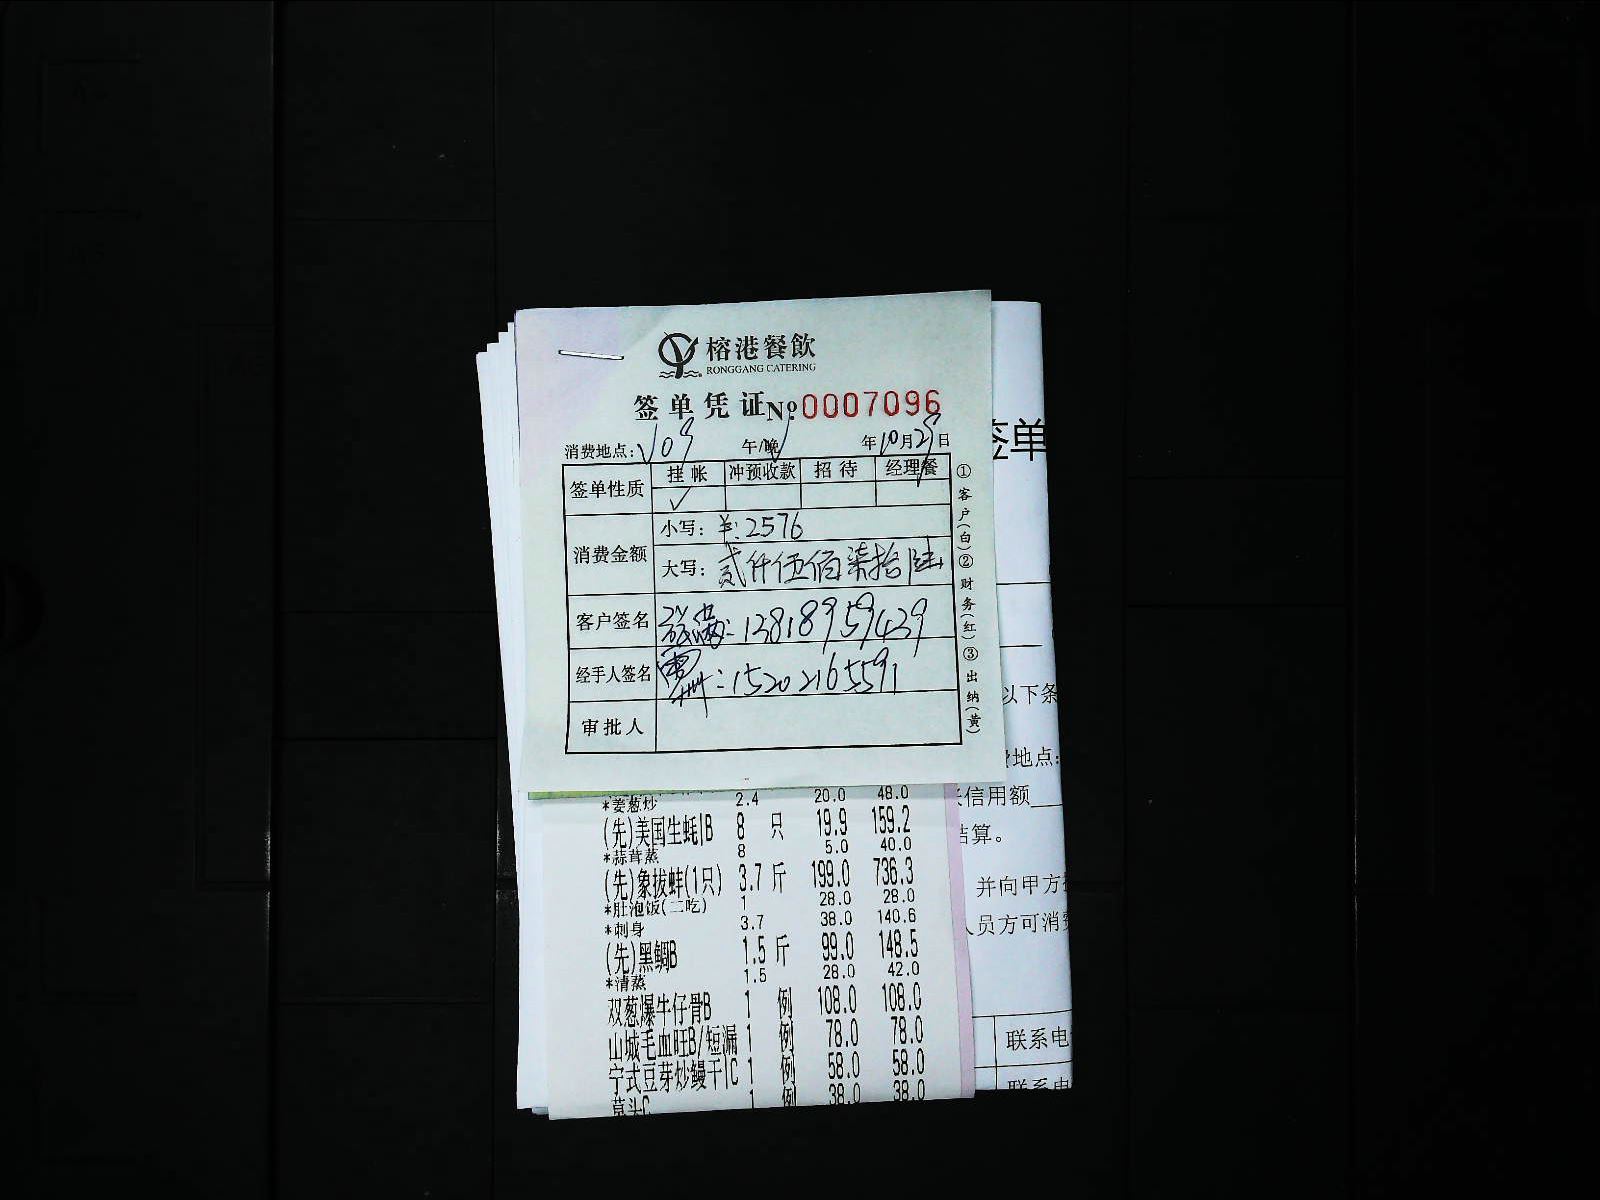 榕港餐飲
RONGGANG CATERING
签单凭证 No 0007096
消费地点: V09 午/晚√ 年10月29日
签单性质 挂帐 冲预收款 招待 经理餐
√
消费金额 小写: ¥:2576
大写: 贰仟伍佰柒拾陆
客户签名 : 13818959439
经手人签名 : 15202165591
审批人
①客户(白)②财务(红)③出纳(黄)
*姜葱炒 2.4 20.0 48.0
(先)美国生蚝IB 8 只 19.9 159.2
*蒜茸蒸 8 5.0 40.0
(先)象拔蚌(1只) 3.7 斤 199.0 736.3
*肚泡饭(二吃) 1 28.0 28.0
*刺身 3.7 38.0 140.6
(先)黑鲷B 1.5 斤 99.0 148.5
*清蒸 1.5 28.0 42.0
双葱爆牛仔骨B 1 例 108.0 108.0
山城毛血旺B/短漏 1 例 78.0 78.0
宁式豆芽炒鳗干IC 1 例 58.0 58.0
草头C 1 例 38.0 38.0
签单
以下条
地点:
信用额
结算。
并向甲方
人员方可消费
联系电
联系电